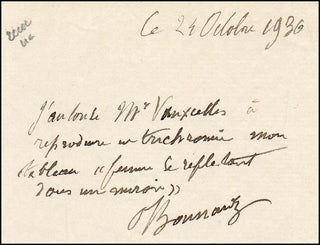 Ce 24 Octobre 1936
J'autorise Mr Vauxcelles à
reproduire en trichromie mon
tableau « femme se refletant
dans un miroir »
PBonnard